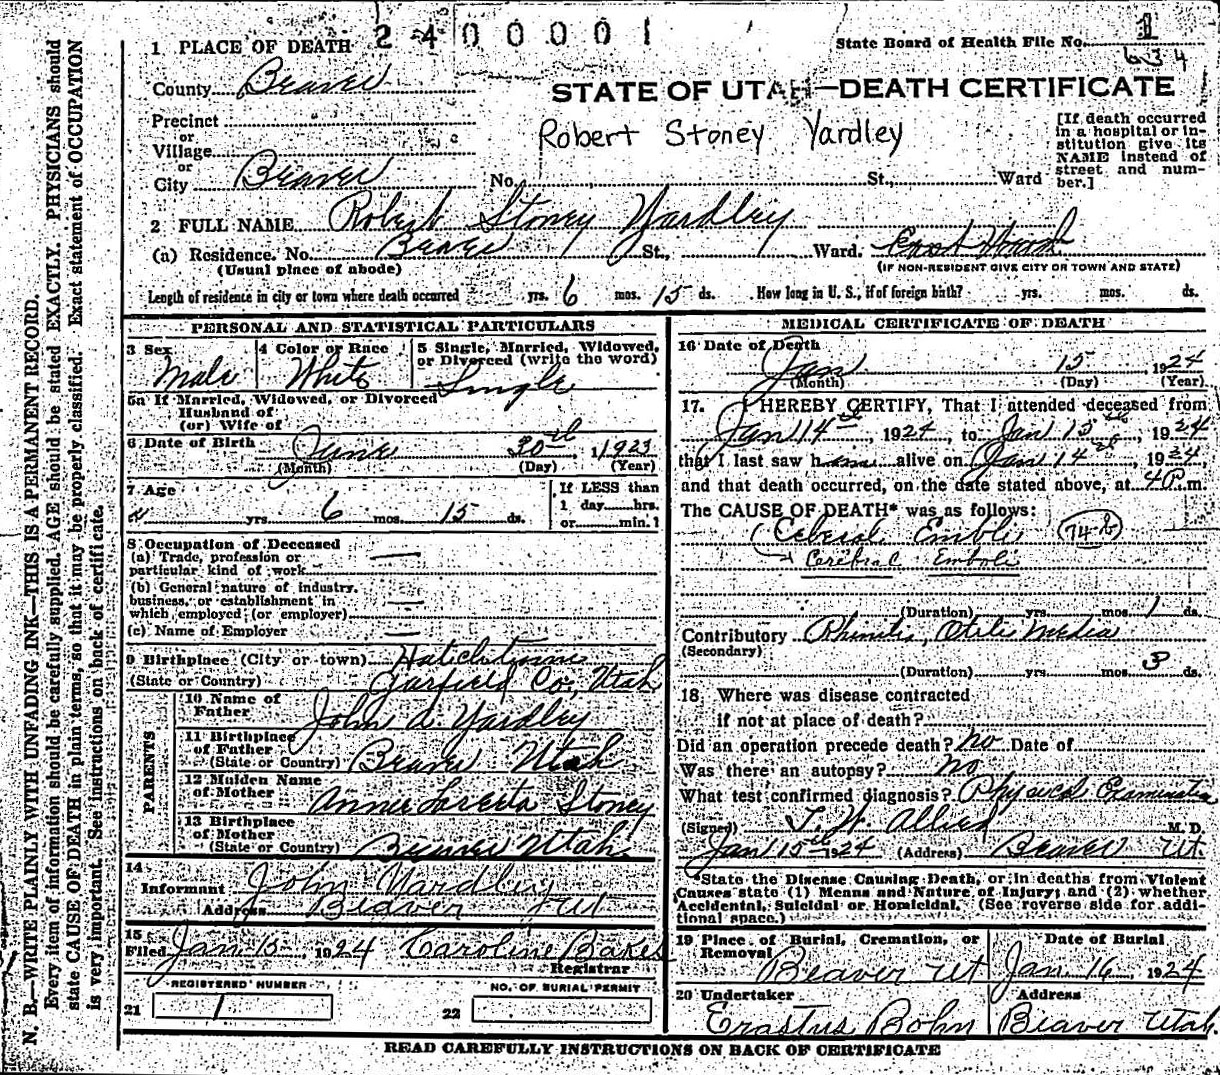 2 4 0 0 0 0 1
1 PLACE OF DEATH
State Board of Health File No. 1
634
County Beaver
STATE OF UTAH—DEATH CERTIFICATE
Precinct
or
Village
or
City Beaver
Robert Stoney Yardley
[If death occurred in a hospital or institution give its NAME instead of street and number.]
No. St., Ward
2 FULL NAME Robert Stoney Yardley
(a) Residence. No. Beaver St., Ward. East Ward
(Usual place of abode)
(IF NON-RESIDENT GIVE CITY OR TOWN AND STATE)
Length of residence in city or town where death occurred yrs. 6 mos. 15 ds. How long in U. S., if of foreign birth? yrs. mos. ds.
PERSONAL AND STATISTICAL PARTICULARS
3 Sex Male
4 Color or Race White
5 Single, Married, Widowed, or Divorced (write the word) Single
5a If Married, Widowed, or Divorced
Husband of
(or) Wife of
6 Date of Birth June 30th, 1923
(Month) (Day) (Year)
7 Age yrs. 6 mos. 15 ds.
If LESS than
1 day hrs.
or min.?
8 Occupation of Deceased
(a) Trade, profession or
particular kind of work
(b) General nature of industry,
business, or establishment in
which employed (or employer)
(c) Name of Employer
9 Birthplace (City or town) Hatchtown
(State or Country) Garfield Co., Utah
PARENTS
10 Name of Father John A. Yardley
11 Birthplace of Father
(State or Country) Beaver Utah
12 Maiden Name of Mother Annie Loreeta Stoney
13 Birthplace of Mother
(State or Country) Beaver Utah
14
Informant John Yardley
Address Beaver Ut
15
Filed Jan 15, 1924 Caroline Bakes
Registrar
REGISTERED NUMBER
21 1
NO. OF BURIAL PERMIT
22
MEDICAL CERTIFICATE OF DEATH
16 Date of Death
Jan 15, 1924
(Month) (Day) (Year)
17. I HEREBY CERTIFY, That I attended deceased from
Jan 14th, 1924, to Jan 15th, 1924
that I last saw him alive on Jan 14th 1924,
and that death occurred, on the date stated above, at 4 P.m.
The CAUSE OF DEATH* was as follows:
Cebral Embli 74-b
Cerebral Emboli
(Duration) yrs. mos. 1 ds.
Contributory Rhinitis, Otitis Media
(Secondary)
(Duration) yrs. mos. 3 ds.
18. Where was disease contracted
if not at place of death?
Did an operation precede death? No Date of
Was there an autopsy? No
What test confirmed diagnosis? Physical Examination
(Signed) M. D.
Jan 15th 1924 (Address) Beaver Ut.
*State the Disease Causing Death, or in deaths from Violent
Causes state (1) Means and Nature of Injury; and (2) whether
Accidental, Suicidal or Homicidal. (See reverse side for addi-
tional space.)
19 Place of Burial, Cremation, or Removal
Beaver Ut
Date of Burial
Jan 16, 1924
20 Undertaker
Erastus Bohn
Address
Beaver Utah.
READ CAREFULLY INSTRUCTIONS ON BACK OF CERTIFICATE
N. B.—WRITE PLAINLY WITH UNFADING INK—THIS IS A PERMANENT RECORD.
Every item of information should be carefully supplied. AGE should be stated EXACTLY. PHYSICIANS should
state CAUSE OF DEATH in plain terms, so that it may be properly classified. Exact statement of OCCUPATION
is very important. See instructions on back of certificate.